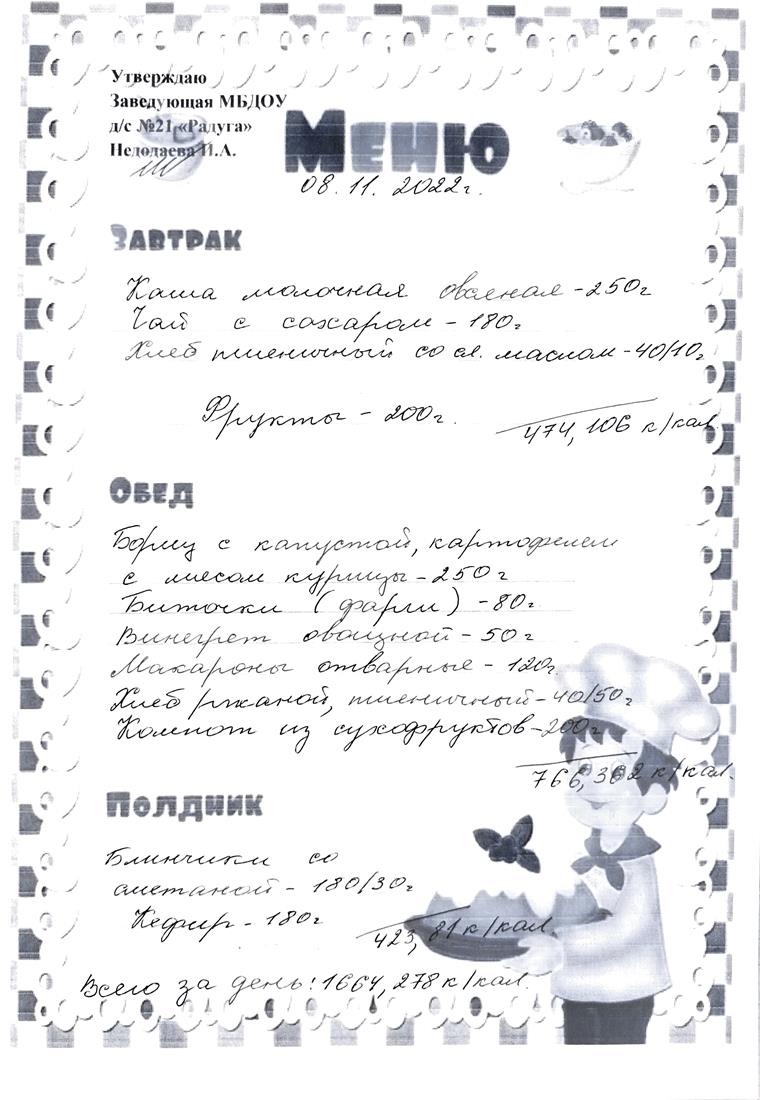 Утверждаю
Заведующая МБДОУ
д/с №21 «Радуга»
Недодаева И.А.
Меню
08.11.2022г.
Завтрак
Каша молочная овсяная - 250г
Чай с сахаром - 180г
Хлеб пшеничный со сл. маслом - 40/10г
Фрукты - 200г.
474,106 к/кал.
Обед
Борщ с капустой, картофелем
с мясом курицы - 250г
Биточки (фарш) - 80г
Винегрет овощной - 50г
Макароны отварные - 120г
Хлеб ржаной, пшеничный - 40/50г
Компот из сухофруктов - 200г
766,362 к/кал.
Полдник
Блинчики со
сметаной - 180/30г
Кефир - 180г
423,81 к/кал.
Всего за день: 1664,278 к/кал.